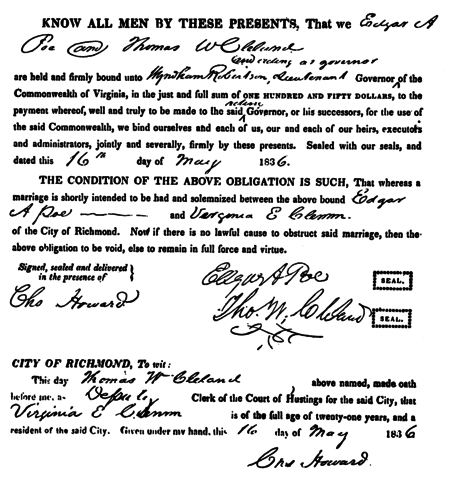 KNOW ALL MEN BY THESE PRESENTS, That we Edgar A
Poe and Thomas W Cleland
and acting as governor
are held and firmly bound unto Wyndham Robertson, Lieutenant Governor of the
Commonwealth of Virginia, in the just and full sum of ONE HUNDRED AND FIFTY DOLLARS, to the
acting
payment whereof, well and truly to be made to the said Governor, or his successors, for the use of
the said Commonwealth, we bind ourselves and each of us, our and each of our heirs, executors
and administrators, jointly and severally, firmly by these presents. Sealed with our seals, and
dated this 16th day of May 1836.
THE CONDITION OF THE ABOVE OBLIGATION IS SUCH, That whereas a
marriage is shortly intended to be had and solemnized between the above bound Edgar
A Poe and Virginia E Clemm.
of the City of Richmond. Now if there is no lawful cause to obstruct said marriage, then the
above obligation to be void, else to remain in full force and virtue.
Signed, sealed and delivered
in the presence of
Edgar A Poe SEAL.
Cho Howard
Tho. W. Cleland SEAL.
CITY OF RICHMOND, To wit:
This day Thomas W Cleland above named, made oath
before me, as Deputy Clerk of the Court of Hustings for the said City, that
Virginia E Clemm is of the full age of twenty-one years, and a
resident of the said City. Given under my hand, this 16 day of May 1836
Chs Howard.